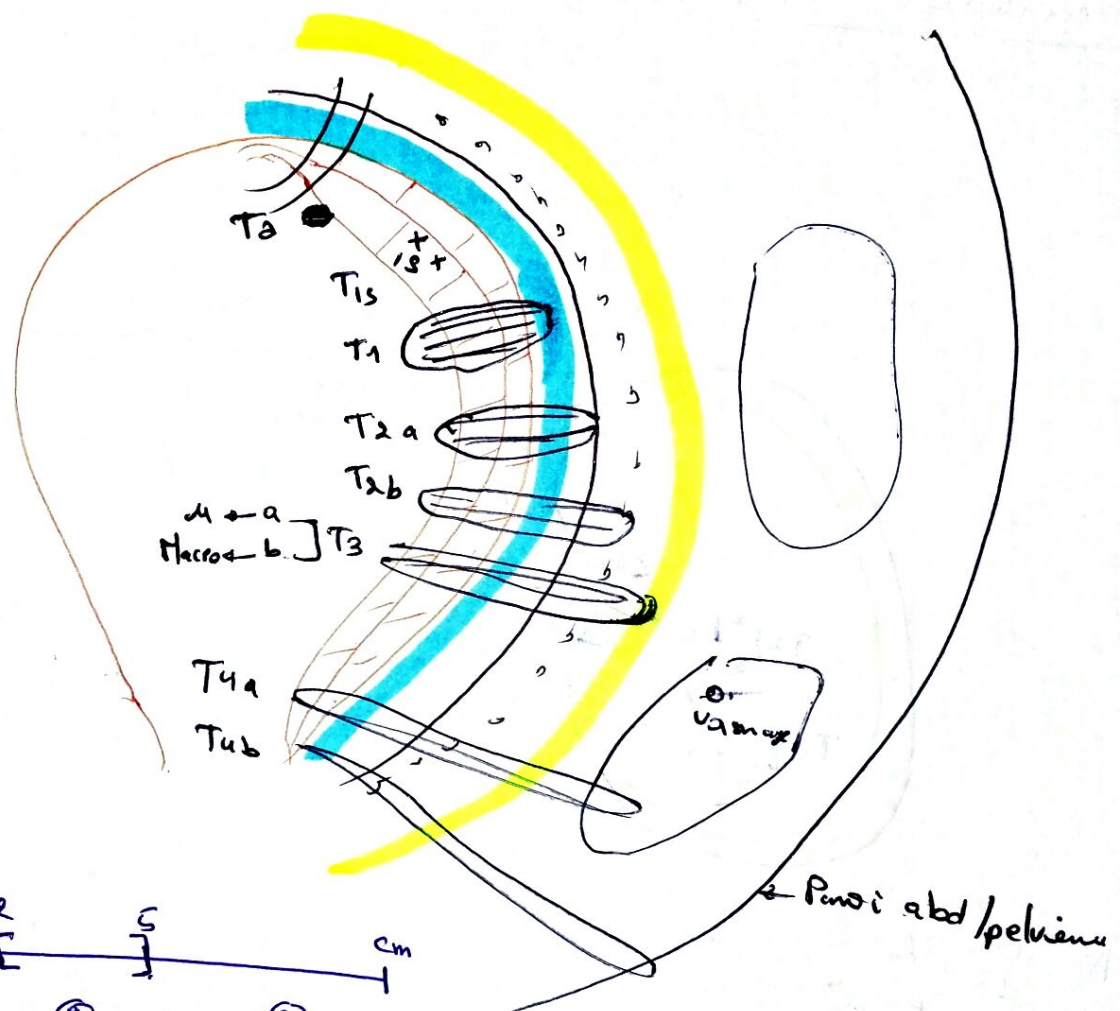 Ta
is
T1s
T1
T2 a
T2b
M ← a
Macro ← b ] T3
T4a
T4b
← Paroi abd/pelvienne
2
5
cm